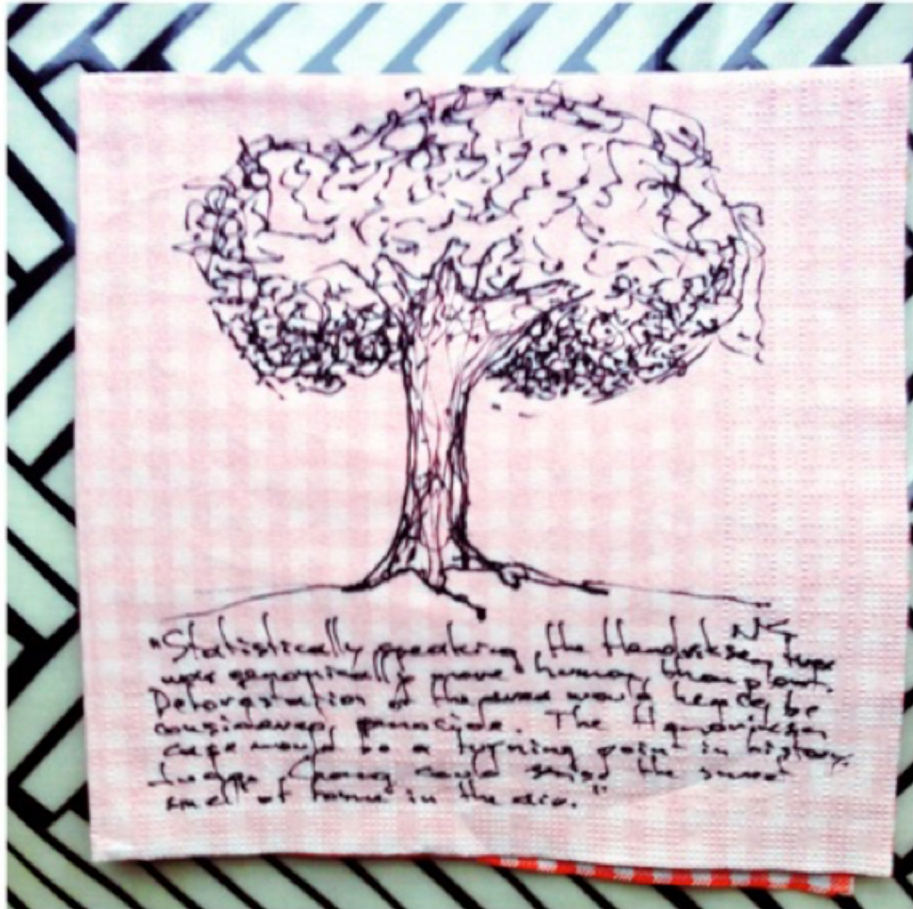 NG
"Statistically speaking, the Hendriksen tree
was genomically more human than plant.
Deforestation of the area would hence be
considered genocide. The Hendriksen
case would be a turning point in history.
Judge Chang could smell the sweet
smell of fame in the air."